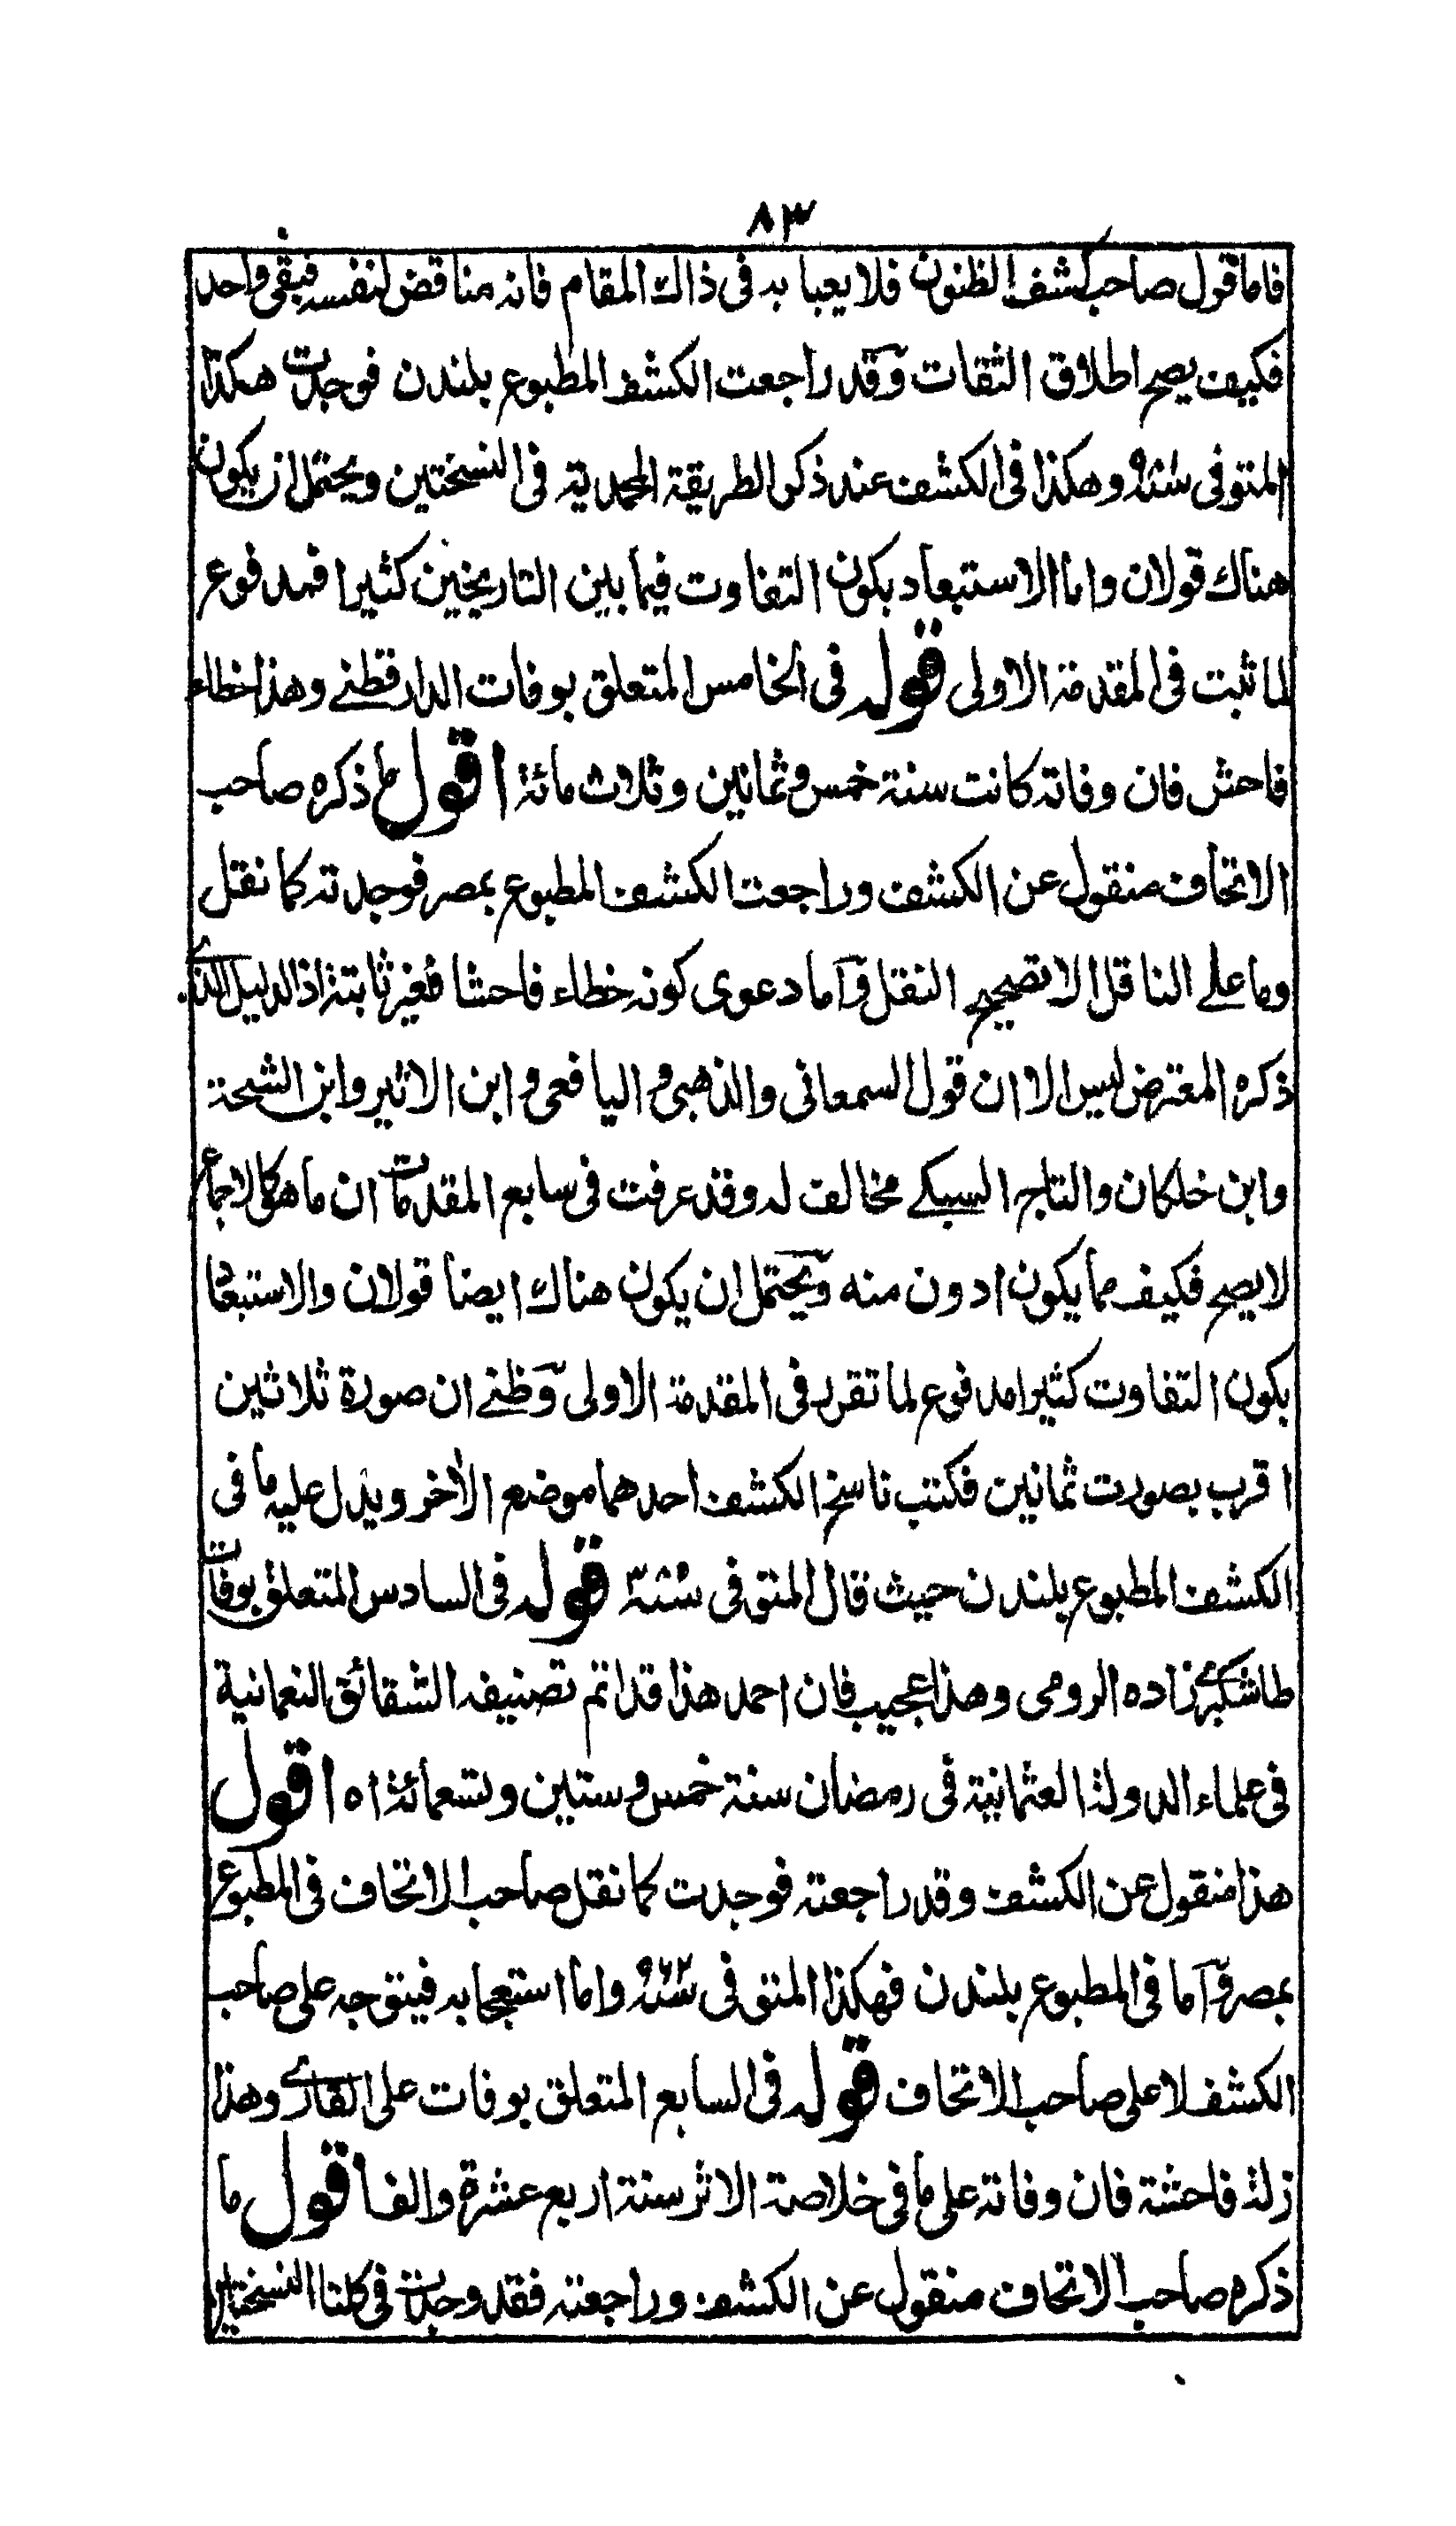 ٨٣
فاما قول صاحب كشف الظنون فلا يعبا به فى ذاك المقام فانه مناقض لنفسه فبقى واحد
فكيف يصح اطلاق الثقات وقد راجعت الكشف المطبوع بلندن فوجدت هكذا
المتوفى وهكذا فى الكشف عند ذكر الطريقة المحمدية فى النسختين ويحتمل ان يكون
هناك قولان واما الاستبعاد بكون التفاوت فيما بين التاريخين كثيرا فمدفوع
لما ثبت فى المقدمة الاولى قوله فى الخامس المتعلق بوفات الدارقطنے وهذا خطاء
فاحش فان وفاته كانت سنة خمس وثمانين وثلاث مائة اقول ما ذكره صاحب
الاتحاف منقول عن الكشف وراجعت الكشف المطبوع بمصر فوجدته كما نقل
وما علے الناقل الا تصحيح النقل وآما دعوى كونه خطاء فاحشا فغير ثابتة اذ الدليل الذے
ذكره المعترض ليس الا ان قول السمعانى والذهبى و اليافعى وابن الاثير وابن الشحنة
وابن خلكان والتاج السبكے مخالف له وقد عرفت فى سابع المقدمات ان ما هو كالاجماع
لا يصح فكيف مما يكون ادون منه ويحتمل ان يكون هناك ايضا قولان والاستبعاد
بكون التفاوت كثيرا مدفوع لما تقرر فى المقدمة الاولى وظنے ان صورة ثلاثين
اقرب بصورت ثمانين فكتب ناسخ الكشف احدهما موضع الآخر ويدل عليه ما فى
الكشف المطبوع بلندن حيث قال المتوفى قوله فى السادس المتعلق بوفات
طاشكبرے زاده الرومى وهذا عجيب فان احمد هذا قد اتم تصنيفه الشقائق النعمانية
فى علماء الدولة العثمانية فى رمضان سنة خمس وستين وتسعمائة اه اقول
هذا منقول عن الكشف وقد راجعته فوجدت كما نقل صاحب الاتحاف فى المطبوع
بمصر وآما فى المطبوع بلندن فهكذا المتوفى سنة ٩٦٢ واما استعجابه فيتوجه على صاحب
الكشف لا على صاحب الاتحاف قوله فى السابع المتعلق بوفات على القارے وهذا
زلة فاحشة فان وفاته على ما فى خلاصة الاثر سنة اربع عشرة والف اقول ما
ذكره صاحب الاتحاف منقول عن الكشف وراجعته فقد وجدت فى كلتا النسختين